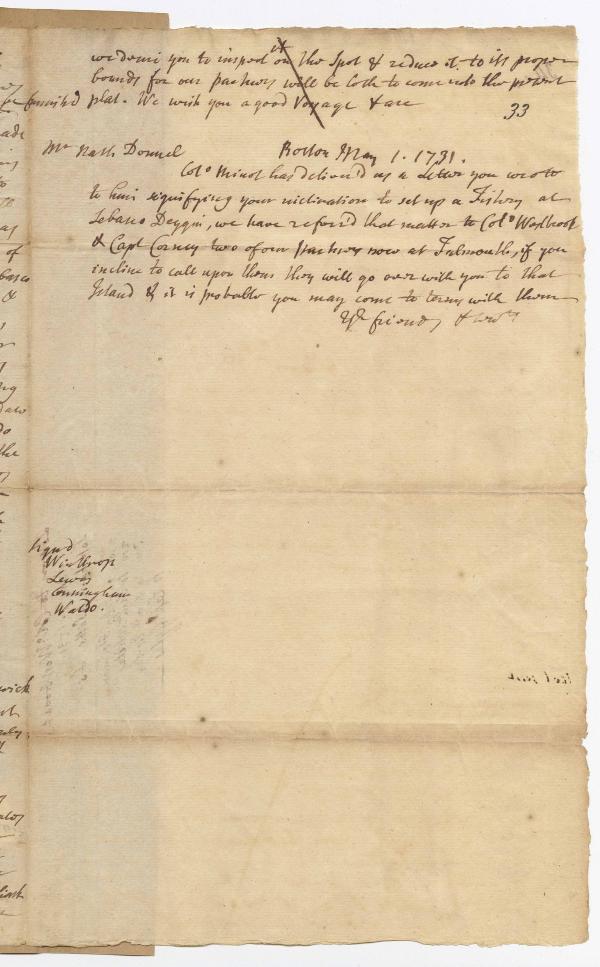 we desire you to inspect it on the Spot & reduce it to its proper
bounds for our partners will be loth to come into the present
finish'd plat. We wish you a good Voyage & are
33
Mr Nath Donnel Boston May 1. 1731.
Colo Minot has deliver'd us a Letter you wrote
to him signifying your inclination to set up a Fishery at
Sebasco Deggin, we have refer'd that matter to Colo Westbrook
& Capt Corney two of our partners now at Falmouth, if you
incline to call upon them they will go over with you to that
Island & it is probable you may come to terms with them
Yr friends &
Sign'd
Winthrop
Lewis
Cunningham
Waldo.